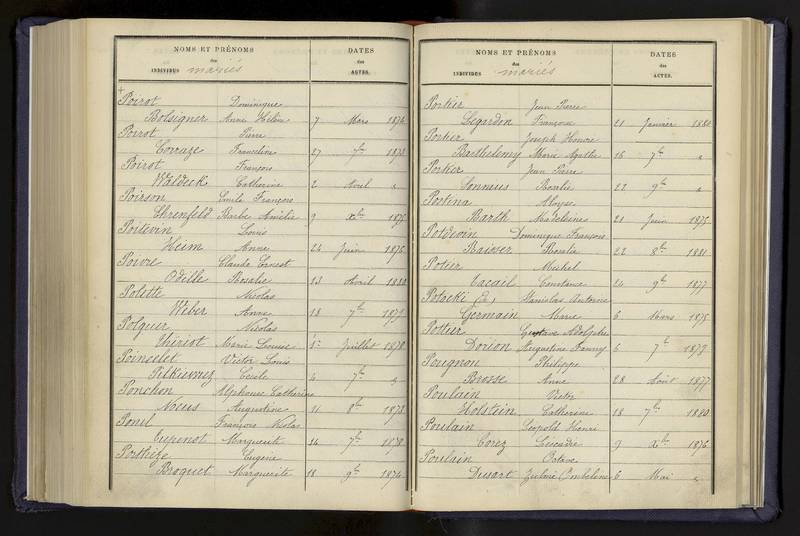 NOMS ET PRÉNOMS
des
INDIVIDUS mariés
DATES
des
ACTES.
Poirot Dominique
Bolsigner Anne Hélène 7 Mars 1874
Poirot Pierre
Corraze Franceline 27 1873
Poirot François
Waldeck Catherine 2 Avril "
Poirson Emile François
Ehrenfeld Barbe Amélie 9 Xbre 1875
Poitevin Louis
Heim Anne 24 Juin 1876
Poivre Claude Ernest
Odille Rosalie 13 Avril 1880
Polette Nicolas
Weber Anne 18 7bre 1879
Polguer Nicolas
Thiriot Marie Louise 1er Juillet 1878
Poincelet Victor Louis
Cécile 4 7bre
Ponchon Alphonse Catherine
Noeus Augustine 11 8bre 1873
Ponil François Nicolas
Tupenot Marguerite 14 7bre 1878
Porthize Eugène
Braquet Marguerite 18 9bre 1874
NOMS ET PRÉNOMS
des
INDIVIDUS mariés
DATES
des
ACTES.
Portier Jean Pierre
Legardon Françoise 21 Janvier 1880
Portier Joseph Honoré
Barthelemy Marie Agathe 16 7bre "
Portier Jean Pierre
Sonnaus Rosalie 22 9bre "
Postina Aloyse
Barth Madeleine 21 Juin 1875
Potdevin Dominique François
Raiser Rosalie 22 8bre 1881
Potier Michel
Cacail Constance 24 9bre 1877
Potocki (de) Stanislas Antoine
Germain Marie 6 Mars 1875
Pottier Gustave Adolphe
Dorion Augustine Fanny 6 7bre 1879
Pougnon Philippe
Brosse Anne 28 Août 1877
Poulain Victor
Holstein Catherine 18 7bre 1880
Poulain Léopold Henri
Corez Léocadie 9 Xbre 1876
Poulain Octave
Dusart Zulmé Ombeline 6 Mai "